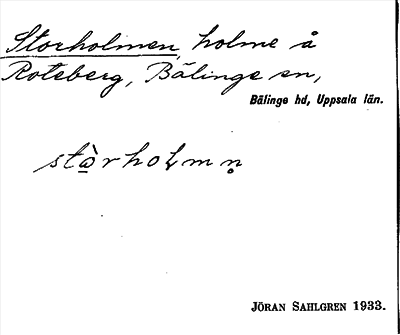 Storholmen, holme å
Roteberg, Bälinge sn,
Bälinge hd, Uppsala län.
stò̲rholmn̥
JÖRAN SAHLGREN 1933.